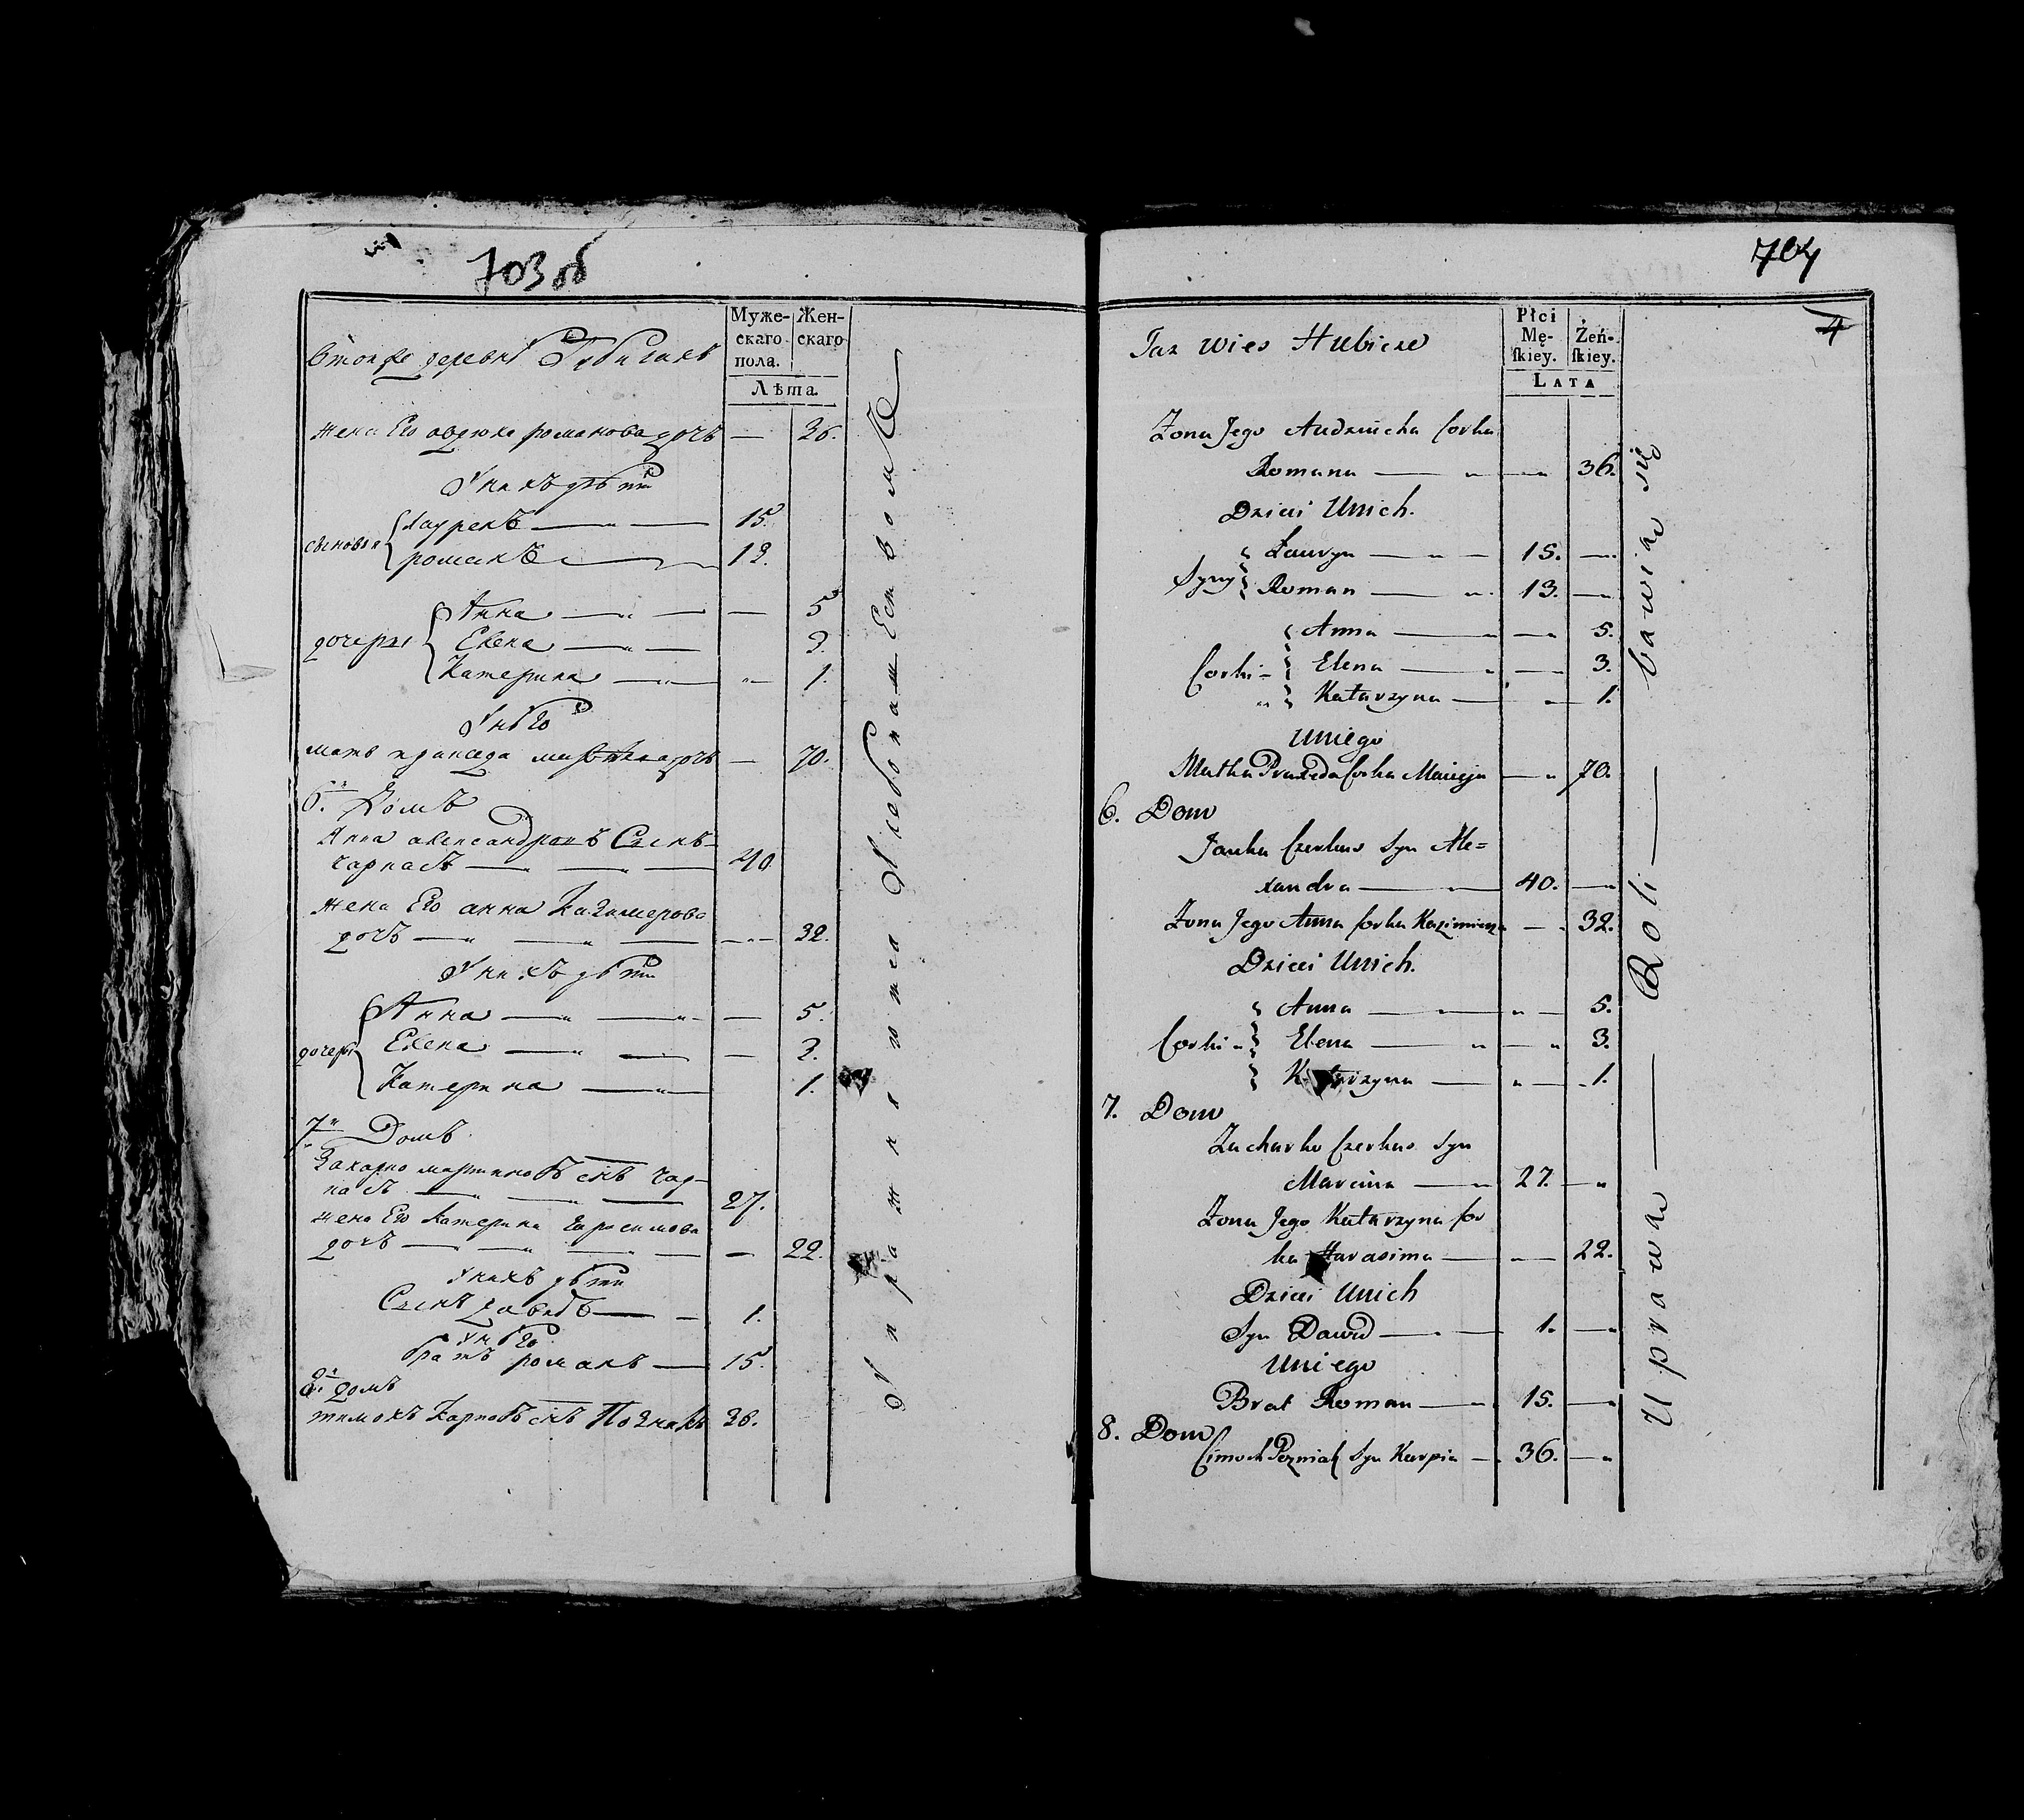 703 об
Втойже деревнѣ Губичахъ
Муже-
скаго
пола.
Жен-
скаго
Лѣта.
жена Его авдюха романова дочь — 36.
У нихъ дѣти
сыновья
лаурен — 15.
романъ — 13.
дочери
Анна — 5
Елена — 3.
Катерина — 1.
У него
мать пракседа дочь — 70.
6. Домъ
Янка александровъ Сынъ
чаркасъ — 40
жена Его анна Казимерова
дочь — 32.
У нихъ дѣти
дочери
Анна — 5.
Елена — 3.
Катерина — 1.
7. Домъ
Захарко мартиновъ сынъ чар-
касъ — 27.
жена Его Катерина Гарасимова
дочь — 22.
У нихъ дѣти
Сынъ давидъ — 1.
У него
братъ романъ — 15.
8. домъ
тимохъ Карповъ сынъ Познякъ 36.
Упражняютса Хлебопашествомъ
704
4
Taz wies Hubicze
Płci
Mę-
ſkiey.
Żeń-
ſkiey.
LATA
Zona Jego Audziucha Corka
Romana — 36.
Dzieci Unich.
Syny
Ławryn — 15.
Roman — 13.
Corki
Anna — 5.
Elena — 3.
Katarzyna — 1.
Uniego
Matka Praxeda Corka Macieja — 70.
6. Dom
Janka Czerkas Syn Ale=
xandra — 40.
Zona Jego Anna Corka Kazimierza — 32.
Dzieci Unich.
Corki
Anna — 5.
Elena — 3.
Katarzyna — 1.
7. Dom
Zacharko Czerkas Syn
Marcina — 27.
Zona Jego Katarzyna Cor
ka Harasima — 22.
Dzieci Unich
Syn Dawid — 1.
Uniego
Brat Roman — 15.
8. Dom
Cimoch Pozniak Syn Karpia — 36.
Uprawą — Roli — bawią się